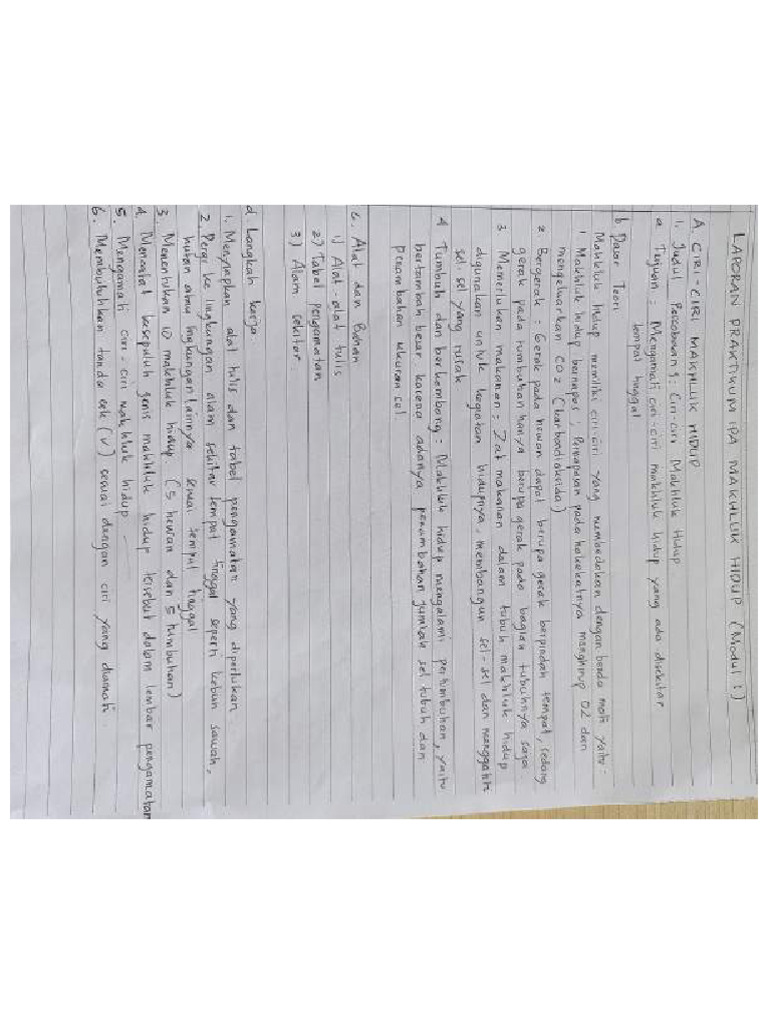 LAPORAN PRAKTIKUM IPA MAKHLUK HIDUP (Modul 1)
A. CIRI-CIRI MAKHLUK HIDUP
1. Judul Percobaan 1: Ciri-ciri Makhluk Hidup
a. Tujuan : Mengamati ciri-ciri makhluk hidup yang ada disekitar
tempat tinggal
b Dasar Teori
Makhluk hidup memiliki ciri-ciri yang membedakan dengan benda mati yaitu:
1 Makhluk hidup bernapas ; Pernapasan pada hakekatnya menghirup O2 dan
mengeluarkan CO2 (karbondioksida)
2. Bergerak : Gerak pada hewan dapat berupa gerak berpindah tempat, sedang
gerak pada tumbuhan hanya berupa gerak pada bagian tubuhnya saja
3 Memerlukan makanan : Zat makanan dalam tubuh makhluk hidup
digunakan untuk kegiatan hidupnya, membangun sel-sel dan mengganti
sel-sel yang rusak
4 Tumbuh dan berkembang : Makhluk hidup mengalami pertumbuhan, yaitu
bertambah besar karena adanya penambahan jumlah sel tubuh dan
penambahan ukuran sel
c. Alat dan Bahan
1) Alat-alat tulis
2) Tabel pengamatan
3) Alam sekitar
d. Langkah kerja
1. Menyiapkan alat tulis dan tabel pengamatan yang diperlukan
2. Pergi ke lingkungan alam sekitar tempat tinggal seperti kebun sawah,
hutan atau lingkungan lainnya sesuai tempat tinggal
3. Menentukan 10 makhluk hidup (5 hewan dan 5 tumbuhan)
4. Mencatat kesepuluh jenis makhluk hidup tersebut dalam lembar pengamatan
5. Mengamati ciri-ciri makhluk hidup
6. Membubuhkan tanda cek (v) sesuai dengan ciri yang diamati